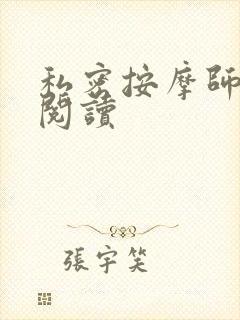 私密按摩師
閱讀
張宇笑